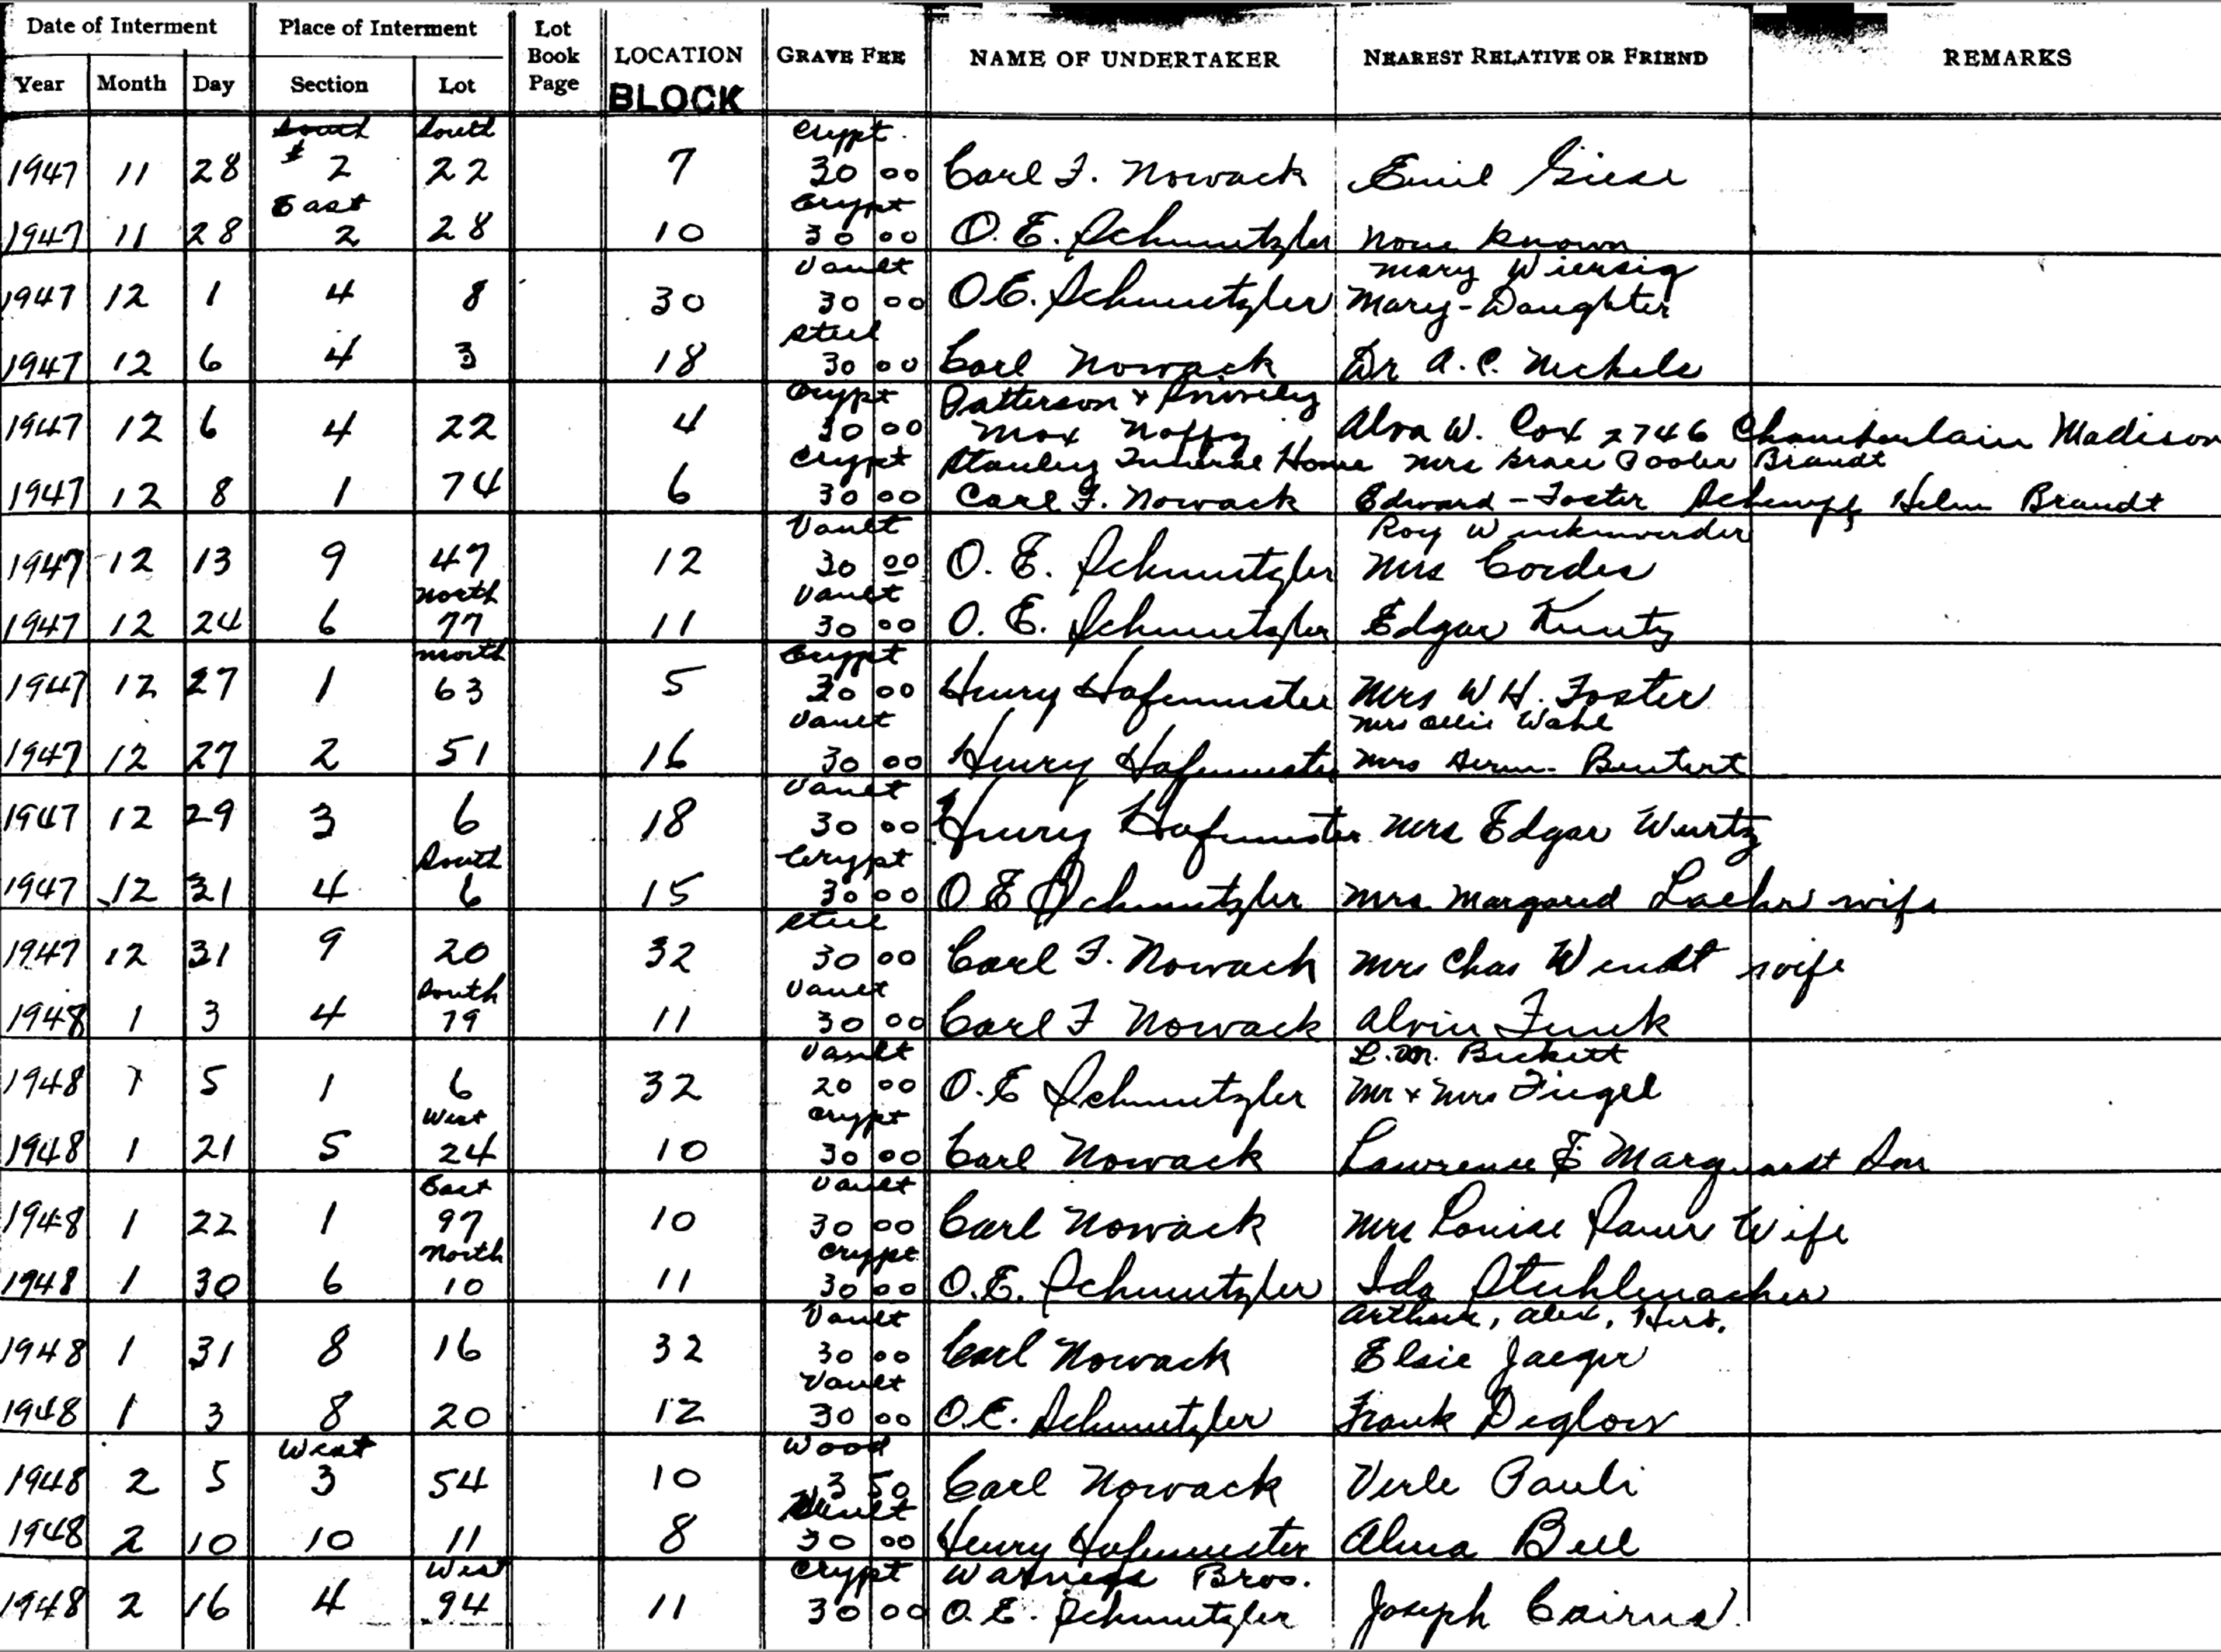 Date of Interment Place of Interment Lot Book Page LOCATION GRAVE FEE NAME OF UNDERTAKER NEAREST RELATIVE OR FRIEND REMARKS
Year Month Day Section Lot BLOCK
South South Crypt
1947 11 28 # 2 22 7 30 00 Carl F. Nowack Emil Giese
East Crypt
1947 11 28 2 28 10 30 00 O. E. Schmutzler None Known
Vault Mary Wiersig
1947 12 1 4 8 30 30 00 O.E. Schmutzler Mary - Daughter
Steel
1947 12 6 4 3 18 30 00 Carl Nowack Dr A. C.
Crypt Patterson +
1947 12 6 4 22 4 30 00 Max Alva W. Cox 2746 Chamberlain Madison
Crypt Stanley Funeral Home Mrs Grace Brandt
1947 12 8 1 74 6 30 00 Carl F. Nowack Edward - Foster Brandt
Vault Roy
1947 12 13 9 47 12 30 00 O. E. Schmutzler Mrs Cordes
North Vault
1947 12 24 6 77 11 30 00 O. E. Schmutzler Edgar Kuntz
North Crypt
1947 12 27 1 63 5 30 00 Henry Hafemeister Mrs W H. Foster
Vault Mrs Ollie Wahl
1947 12 27 2 51 16 30 00 Henry Hafemeister Mrs Herm. Beutert
Vault
1947 12 29 3 6 18 30 00 Henry Hafemeister Mrs Edgar Wurtz
South Crypt
1947 12 31 4 6 15 30 00 O E Schmutzler Mrs wife
Steel
1947 12 31 9 20 32 30 00 Carl F. Nowack Mrs Chas Wendt wife
South Vault
1948 1 3 4 79 11 30 00 Carl F Nowack Alvin Funk
Vault L. M. Beckett
1948 1 5 1 6 32 20 00 O.E Schmutzler Mr + Mrs Fiegel
West Crypt
1948 1 21 5 24 10 30 00 Carl Nowack Lawrence E Marquardt Son
East Vault
1948 1 22 1 97 10 30 00 Carl Nowack Mrs Louise Wife
North Crypt
1948 1 30 6 10 11 30 00 O.E. Schmutzler Ida Stuhlmacher
Vault Arthur, Alex, Herb,
1948 1 31 8 16 32 30 00 Carl Nowack Elsie Jaeger
Vault
1948 1 3 8 20 12 30 00 O.E. Schmutzler Frank Deglow
West Wood
1948 2 5 3 54 10 3 50 Carl Nowack Verle Pauli
Vault
1948 2 10 10 11 8 30 00 Henry Hafemeister Alma Bell
West Crypt Bros.
1948 2 16 4 94 11 30 00 O. E. Schmutzler Joseph Cairns